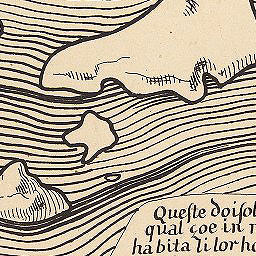 Queste doi sol
qual çoe in
habita li lor ho